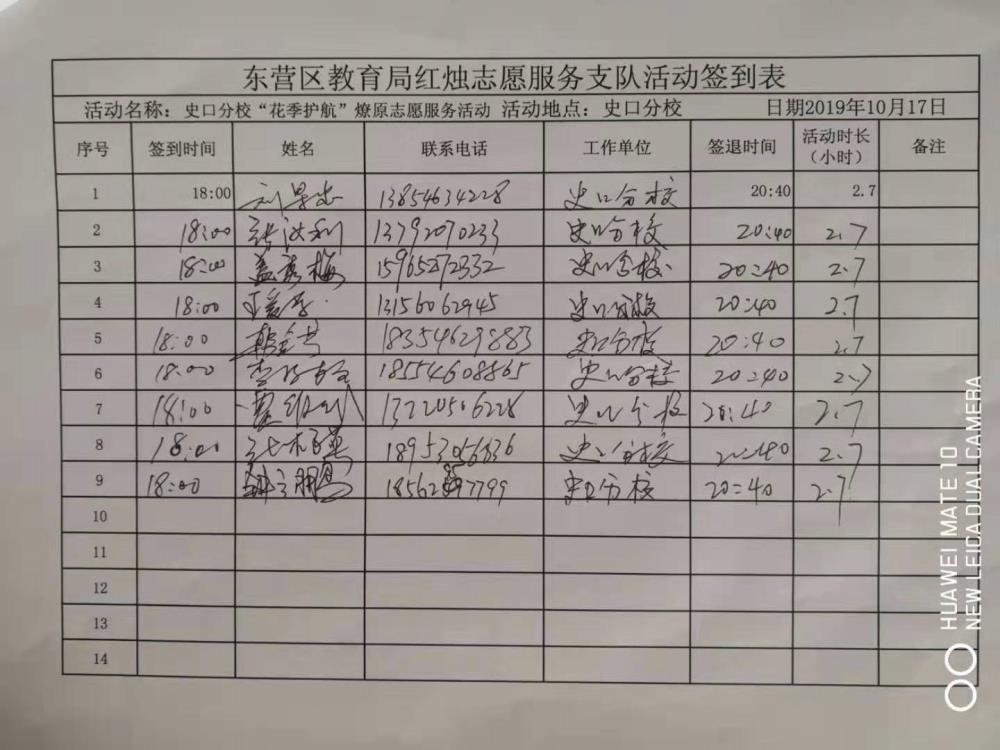 东营区教育局红烛志愿服务支队活动签到表
活动名称：史口分校“花季护航”燎原志愿服务活动 活动地点：史口分校 日期2019年10月17日
序号 签到时间 姓名 联系电话 工作单位 签退时间 活动时长（小时） 备注
1 18:00 13854634228 史口分校 20:40 2.7
2 18:00 13792070233 史口分校 20:40 2.7
3 18:00 15965272332 史口分校 20:40 2.7
4 18:00 13156062945 史口分校 20:40 2.7
5 18:00 18354629883 史口分校 20:40 2.7
6 18:00 18554608865 史口分校 20:40 2.7
7 18:00 史口分校 20:40 2.7
8 18:00 史口分校 20:40 2.7
9 18:00 史口分校 20:40 2.7
10
11
12
13
14
HUAWEI MATE 10
NEW LEICA DUAL CAMERA